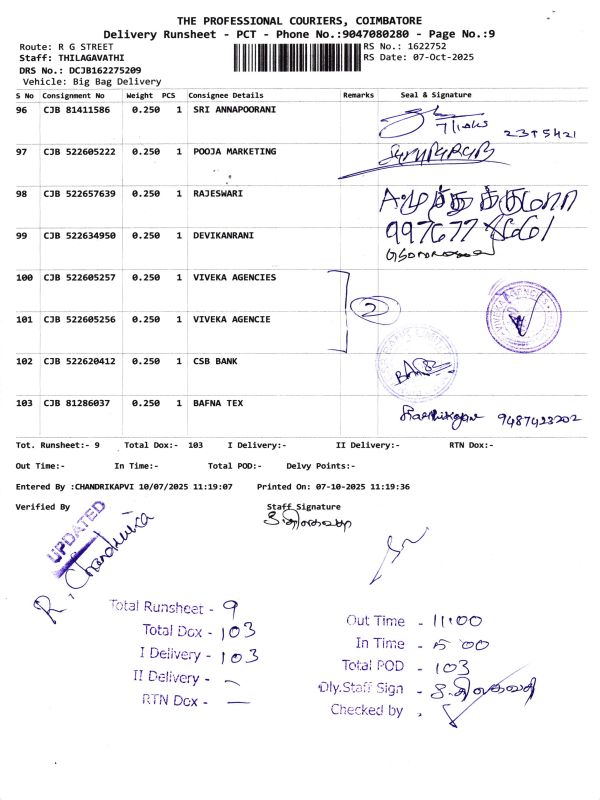 THE PROFESSIONAL COURIERS, COIMBATORE
Delivery Runsheet - PCT - Phone No.:9047080280 - Page No.:9
Route: R G STREET
RS No.: 1622752
Staff: THILAGAVATHI
RS Date: 07-Oct-2025
DRS No.: DCJB162275209
Vehicle: Big Bag Delivery
S No Consignment No Weight PCS Consignee Details Remarks Seal & Signature
96 CJB 81411586 0.250 1 SRI ANNAPOORANI
97 CJB 522605222 0.250 1 POOJA MARKETING
98 CJB 522657639 0.250 1 RAJESWARI
99 CJB 522634950 0.250 1 DEVIKANRANI
100 CJB 522605257 0.250 1 VIVEKA AGENCIES
2
101 CJB 522605256 0.250 1 VIVEKA AGENCIE
102 CJB 522620412 0.250 1 CSB BANK
103 CJB 81286037 0.250 1 BAFNA TEX
9487423202
Tot. Runsheet:- 9 Total Dox:- 103 I Delivery:- II Delivery:- RTN Dox:-
Out Time:- In Time:- Total POD:- Delvy Points:-
Entered By :CHANDRIKAPVI 10/07/2025 11:19:07 Printed On: 07-10-2025 11:19:36
Verified By Staff Signature
UPDATED
R. Chandrika
Total Runsheet - 9
Total Dox - 103
I Delivery - 103
II Delivery - -
RTN Dox - -
Out Time - 11:00
In Time - 5:00
Total POD - 103
Dly.Staff Sign -
Checked by .